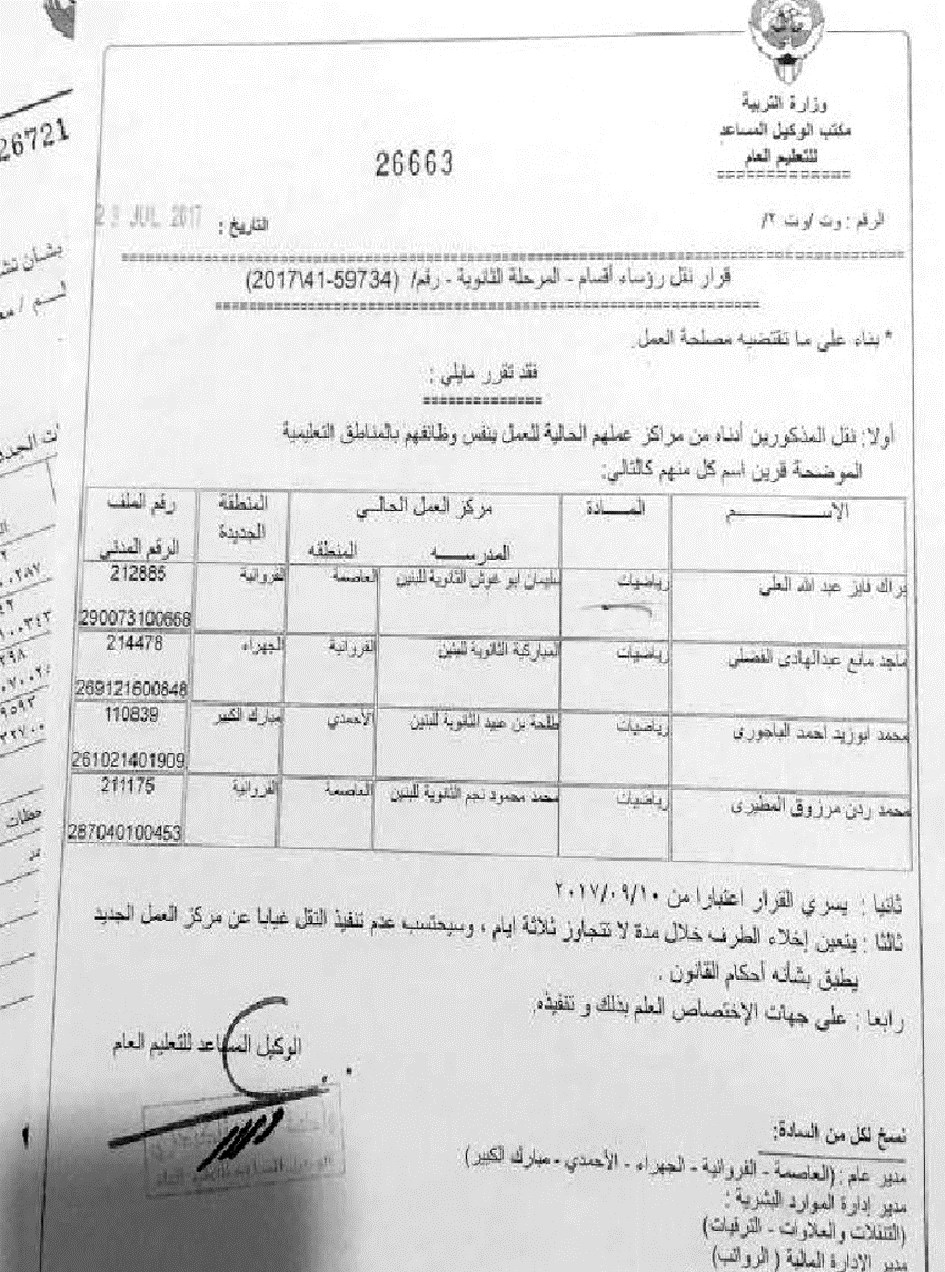 26721
بشأن
وزارة التربية
مكتب الوكيل المساعد
للتعليم العام
26663
الرقم : وت /وت ٢/
التاريخ : 23 JUL 2017
قرار نقل رؤساء أقسام - المرحلة الثانوية - رقم/ (59734-41\2017)
* بناء على ما تقتضيه مصلحة العمل.
فقد تقرر مايلي :
أولا: نقل المذكورين أدناه من مراكز عملهم الحالية للعمل بنفس وظائفهم بالمناطق التعليمية
الموضحة قرين اسم كل منهم كالتالي:
الإســـــــم المـــادة مركز العمل الحالي المنطقة الجديدة رقم الملف
المدرســـه المنطقه الرقم المدني
براك فايز عبد الله العلي رياضيات سليمان ابو غوش الثانوية للبنين العاصمة الفروانية 212885
290073100668
ماجد مانع عبدالهادى الفضلي رياضيات المباركية الثانوية للبنين الفروانية الجهراء 214478
269121600848
محمد ابوزيد احمد الباجوري رياضيات طلحة بن عبيد الثانوية للبنين الأحمدي مبارك الكبير 110839
261021401909
محمد ردن مرزوق المطيرى رياضيات محمد محمود نجم الثانوية للبنين العاصمة الفروانية 211175
287040100453
ثانيا : يسري القرار اعتبارا من ٢٠١٧/٠٩/١٠
ثالثا : يتعين إخلاء الطرف خلال مدة لا تتجاوز ثلاثة ايام ، وسيحتسب عدم تنفيذ النقل غيابا عن مركز العمل الجديد
يطبق بشأنه أحكام القانون .
رابعا : على جهات الإختصاص العلم بذلك و تنفيذه.
الوكيل المساعد للتعليم العام
نسخ لكل من السادة:
مدير عام : (العاصمة - الفروانية - الجهراء - الأحمدي - مبارك الكبير)
مدير إدارة الموارد البشرية :
(التنقلات والعلاوات - الترقيات)
مدير الادارة المالية ( الرواتب)